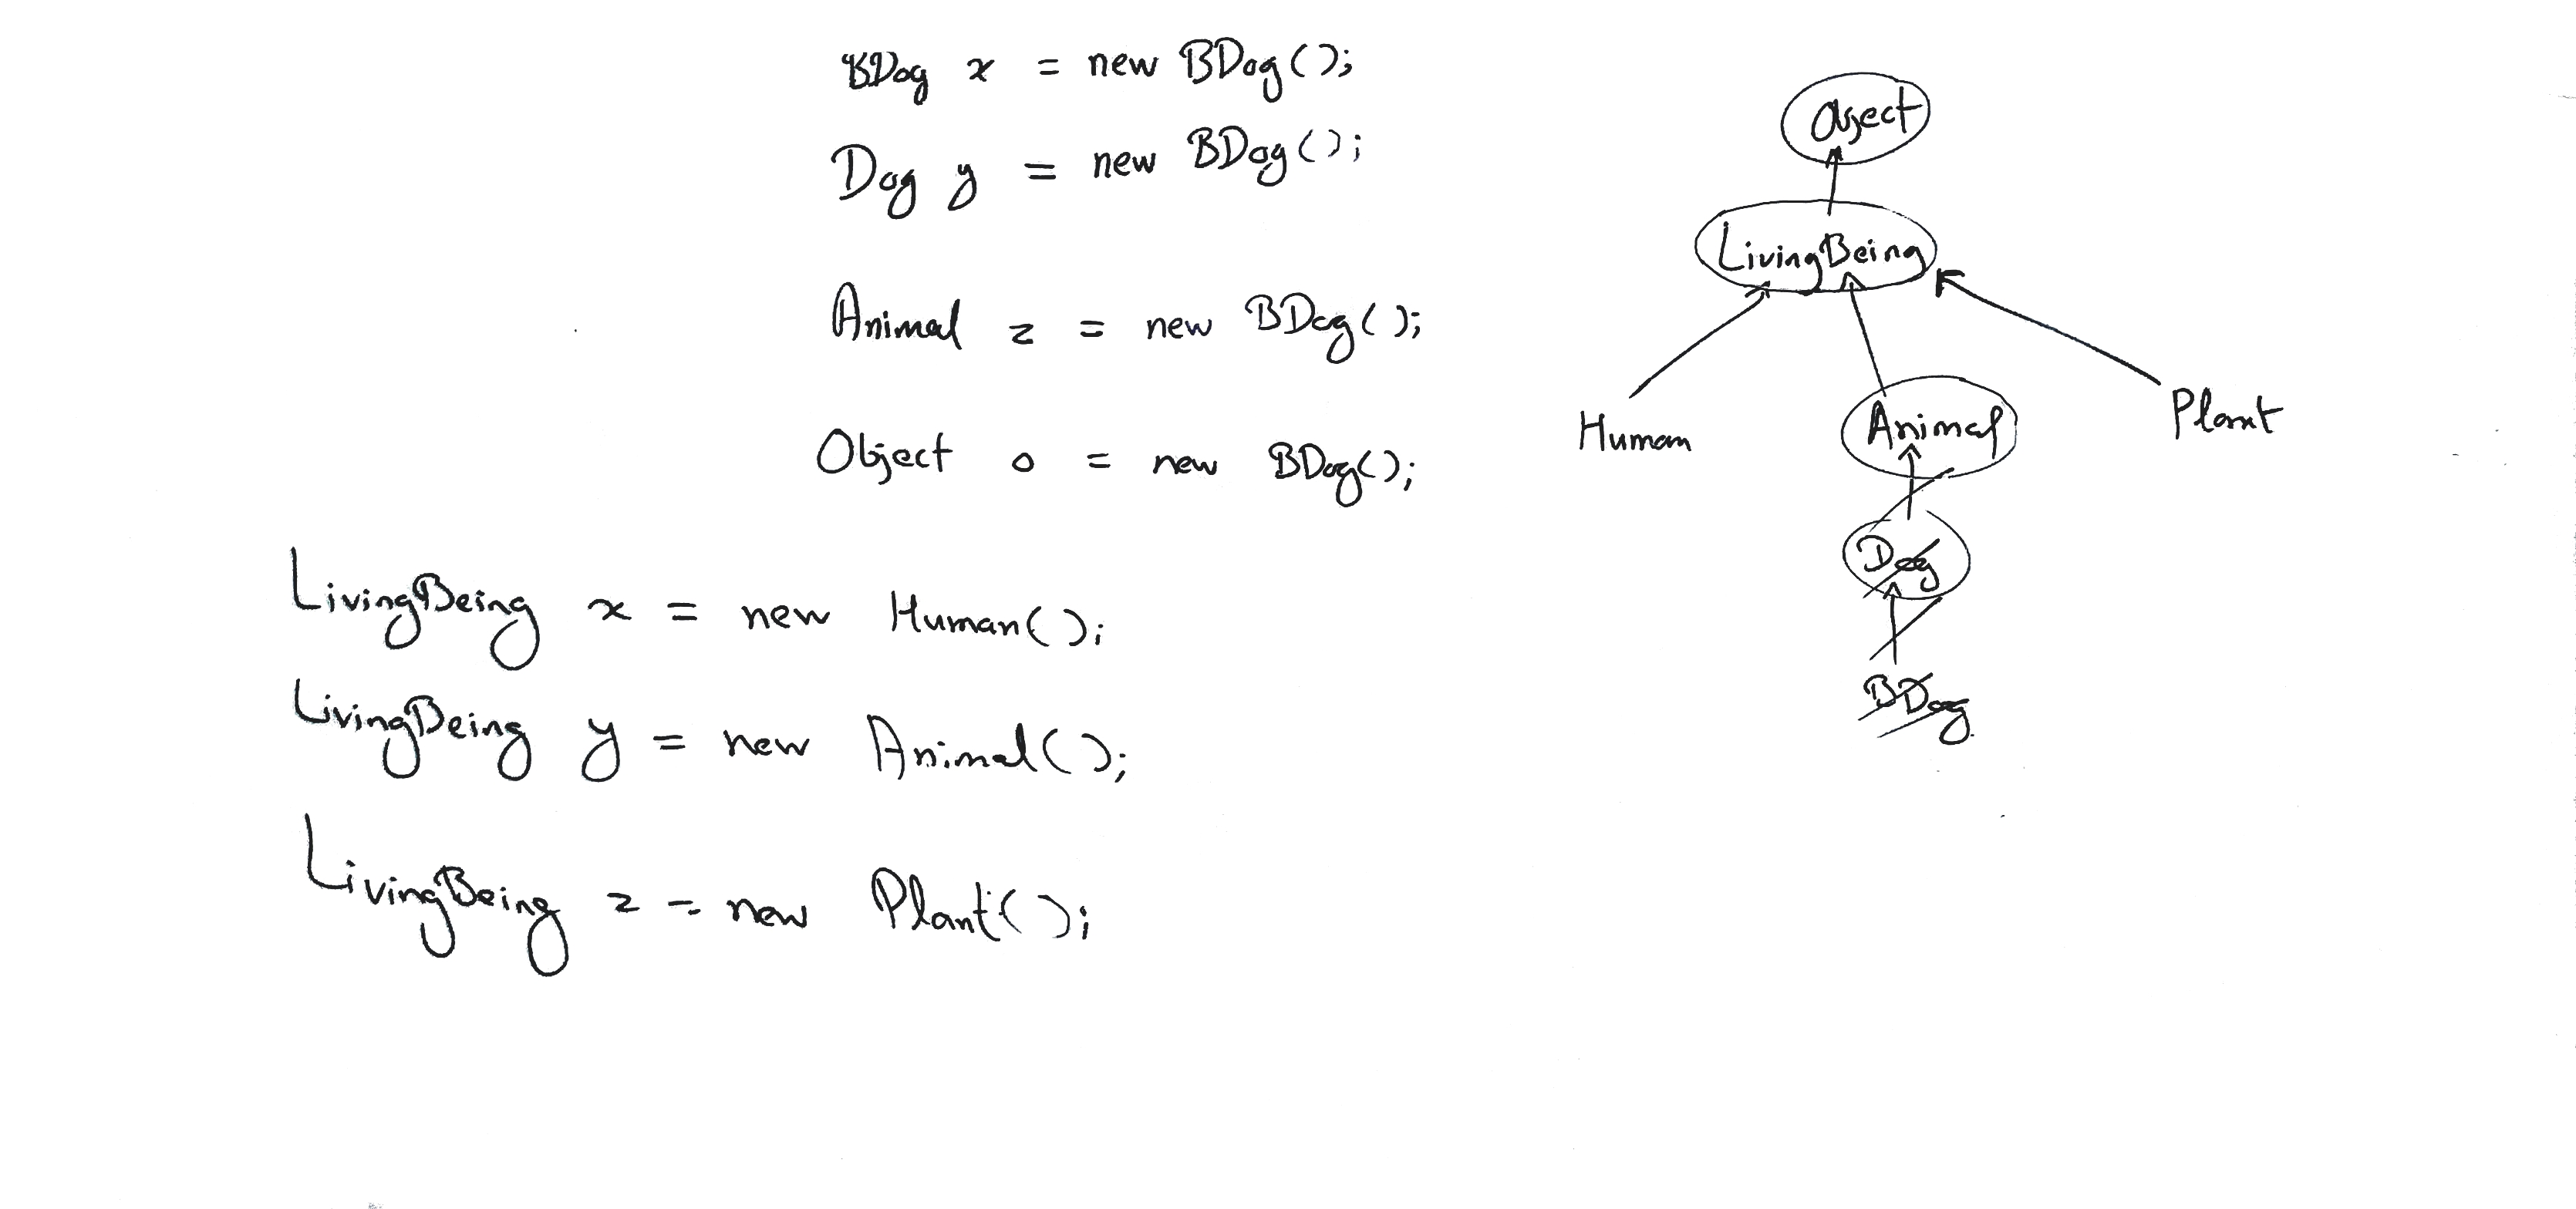 BDog x = new BDog();
Dog y = new BDog();
Animal z = new BDog();
Object o = new BDog();
LivingBeing x = new Human();
LivingBeing y = new Animal();
LivingBeing z = new Plant();
Object
LivingBeing
Human
Animal
Plant
Dog
BDog